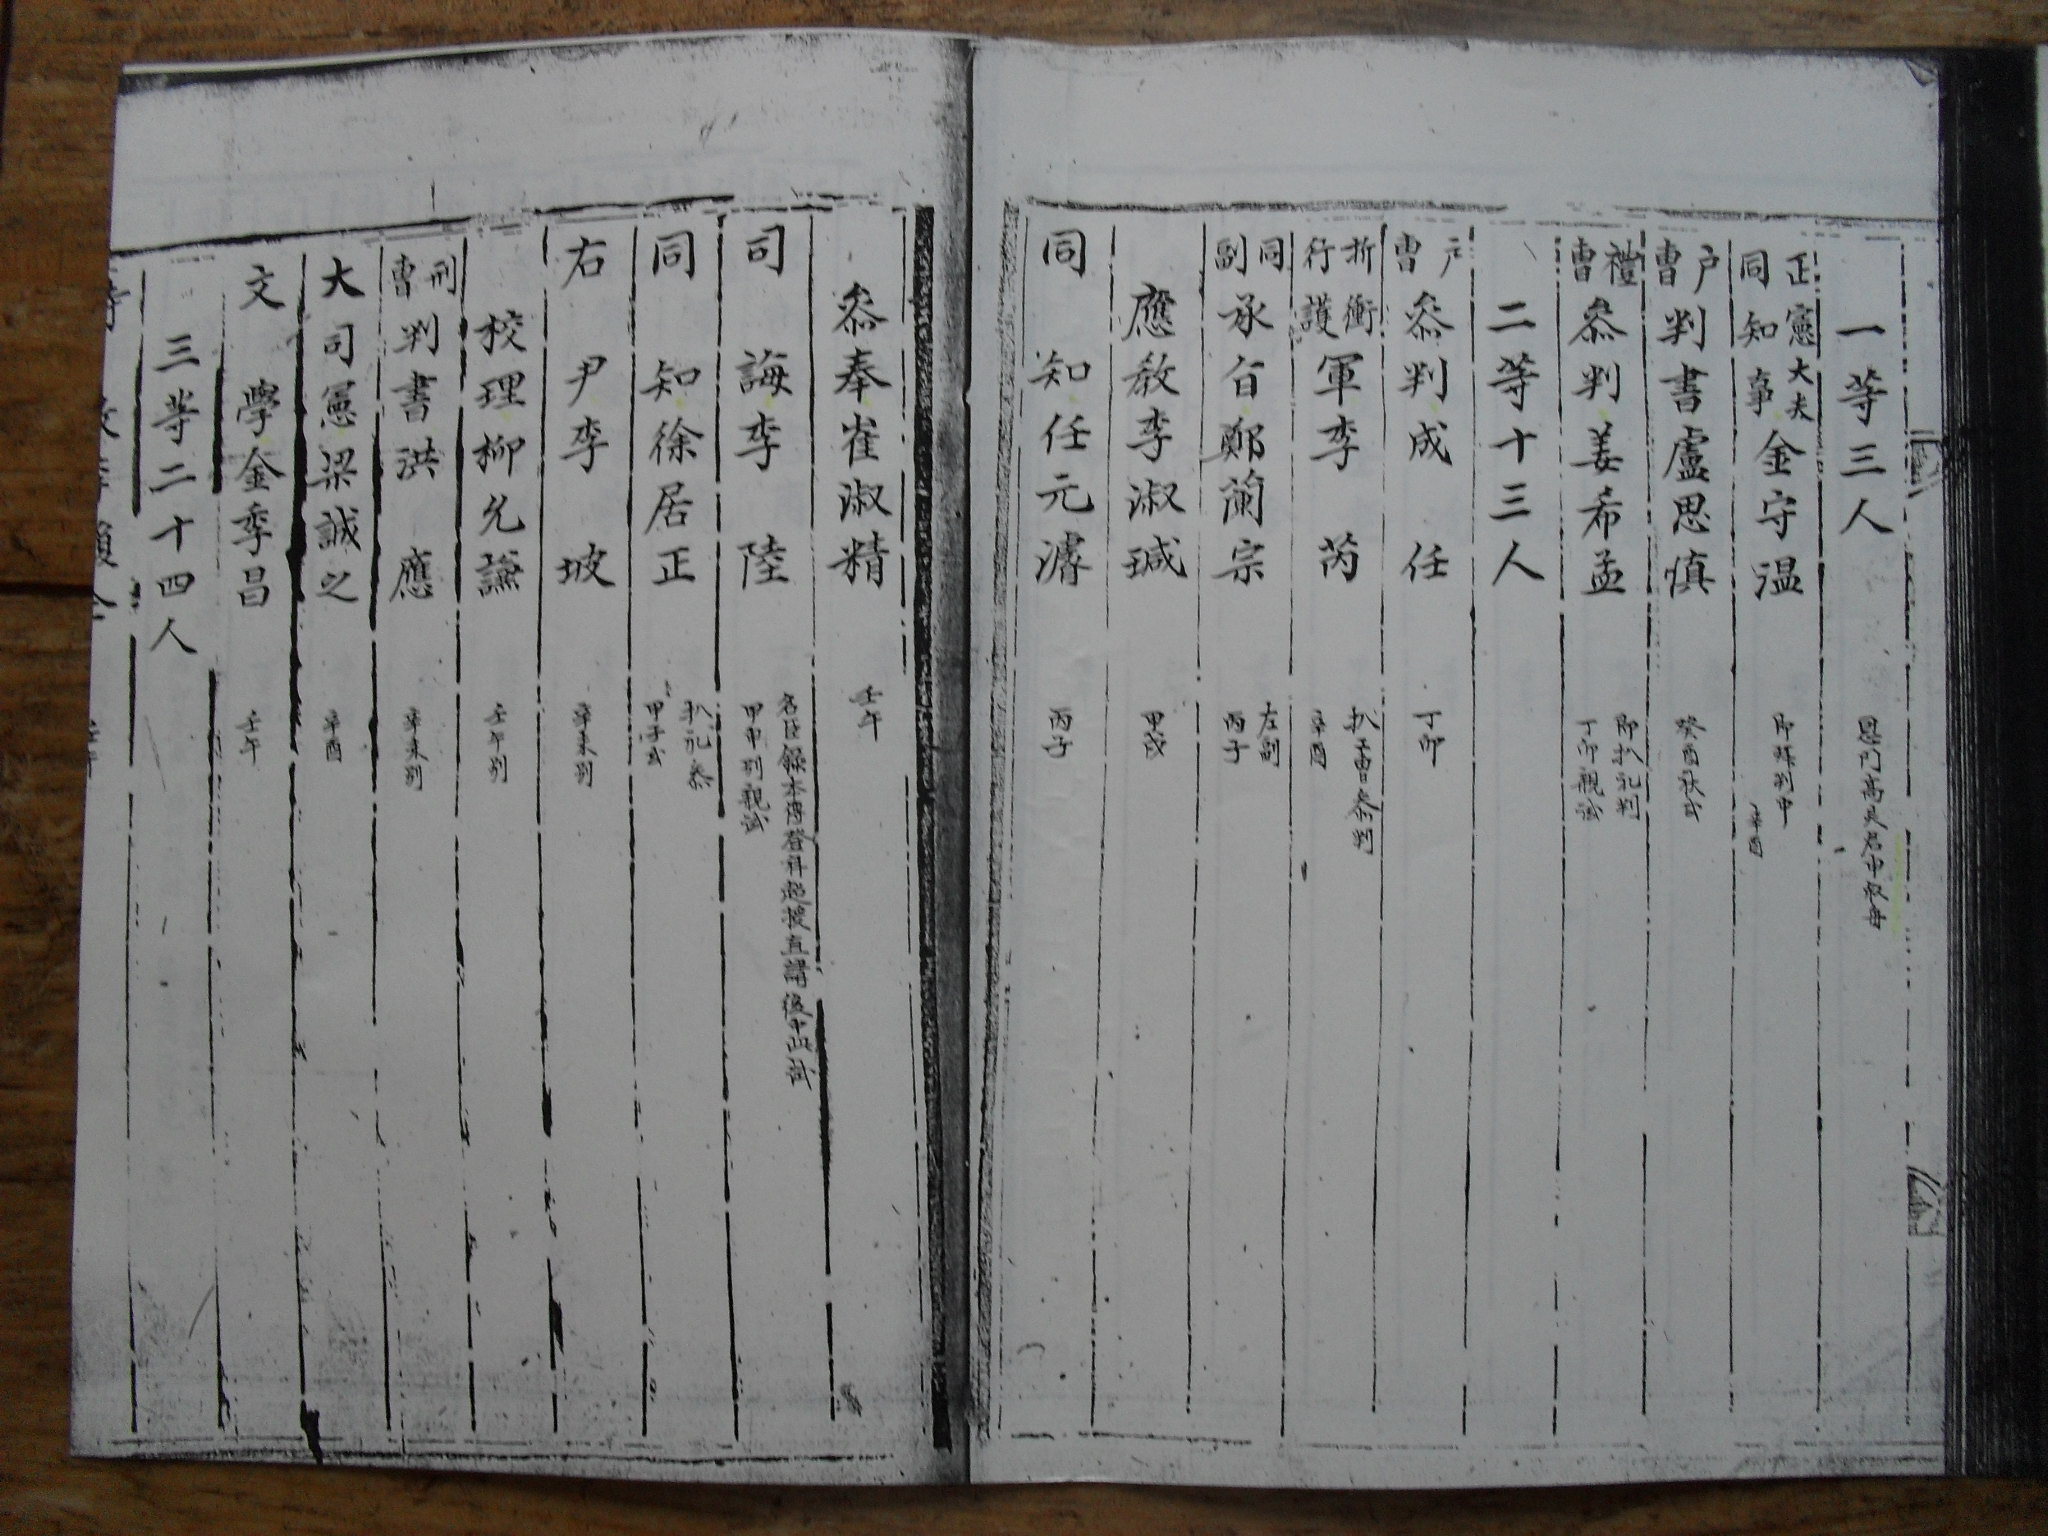 一等三人 恩門高灵君申叔舟
正憲大夫同知事金守温 卽拜判中 辛酉
户曹判書盧思愼 癸酉秋式
禮曹叅判姜希孟 卽扒礼判 丁卯親試
二等十三人
户曹叅判成任 丁卯
折衝行護軍李芮 扒工曹叅判 辛酉
同副承旨鄭蘭宗 左副 丙子
應敎李淑瑊 甲戌
同知任元濬 丙子
叅奉崔淑精 壬午
司誨李陸 名臣錄本傳登科超授直講後中此試 甲申別親試
同知徐居正 扒礼叅 甲子式
右尹李坡 辛未別
校理柳允謙 壬午別
刑曹判書洪應 辛未別
大司憲梁誠之 辛酉
文學金季昌 壬午
三等二十四人